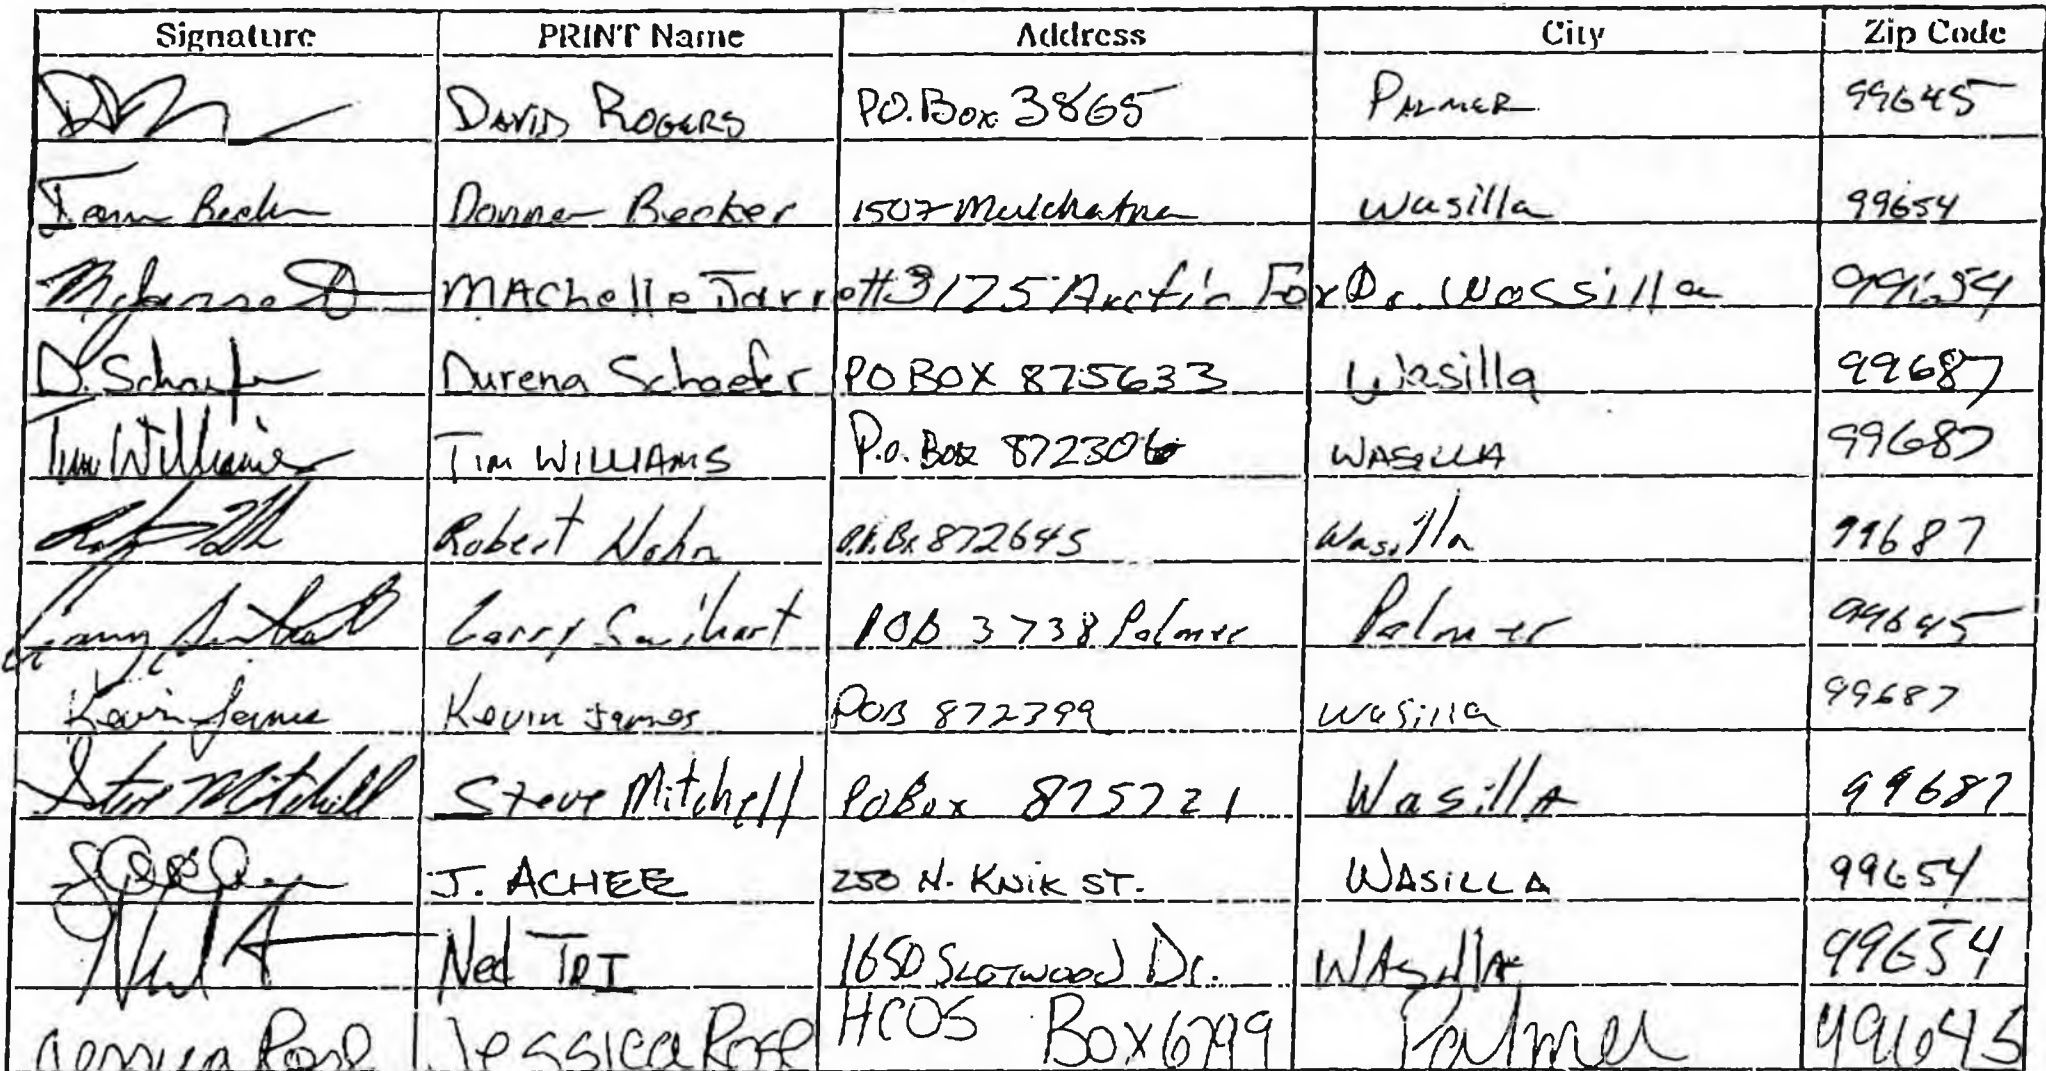 Signature PRINT Name Address City Zip Code
DAVID ROGERS P.O. Box 3865 PALMER 99645
Becker 1507 Mulchatna Wasilla 99654
MAChelle Jarrett 3175 Arctic Fox Dr. Wassilla 99654
D. Schaefer Durena Schaefer PO BOX 875633 Wasilla 99687
Tim Williams TIM WILLIAMS P.O. Box 872306 WASILLA 99687
Robert Hahn 872645 Wasilla 99687
Larry Swihart POB 3738 Palmer Palmer 99645
Kevin James Kevin James POB 872399 Wasilla 99687
Steve Mitchell Steve Mitchell PO Box 875721 WasillA 99687
J. ACHEE 250 N. KNIK ST. WASILLA 99654
Ned 1650 Dr. WAsillA 99654
Jessica Rose Jessica Rose HC05 Box 6799 Palmer 99645